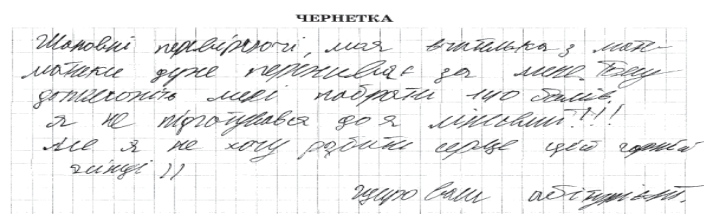 ЧЕРНЕТКА
Шановні перевіряючі, моя вчителька з мате-
матики дуже переживає за мене. Тому
допоможіть мені набрати 140 балів
я не підготувався бо я лінивий!!!
Але я не хочу робити серце цій гарній
жінці ))
щиро ваш абітурієнт.